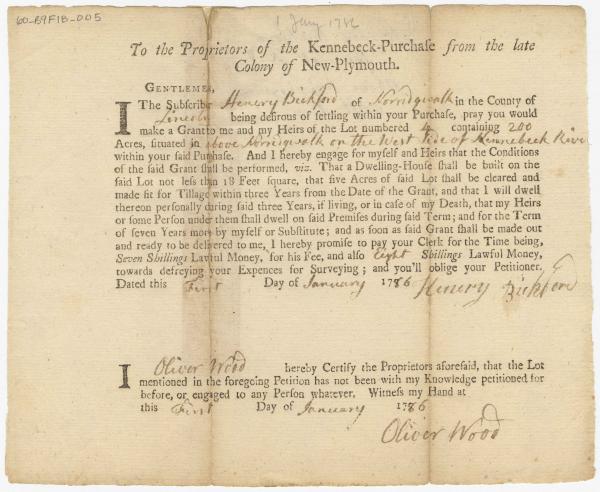 60-B9F1B-005
1 Jany 1786
To the Proprietors of the Kennebeck-Purchase from the late
Colony of New-Plymouth.
GENTLEMEN,
I The Subscriber Henery Bickford of Norridgwalk in the County of
Lincoln being desirous of settling within your Purchase, pray you would
make a Grant to me and my Heirs of the Lot numbered 4 containing 200
Acres, situated in above Norridgwalk on the West side of Kennebeck River
within your said Purchase. And I hereby engage for myself and Heirs that the Conditions
of the said Grant shall be performed, viz. That a Dwelling-House shall be built on the
said Lot not less than 18 Feet square, that five Acres of said Lot shall be cleared and
made fit for Tillage within three Years from the Date of the Grant, and that I will dwell
thereon personally during said three Years, if living, or in case of my Death, that my Heirs
or some Person under them shall dwell on said Premises during said Term; and for the Term
of seven Years more by myself or Substitute; and as soon as said Grant shall be made out
and ready to be delivered to me, I hereby promise to pay your Clerk for the Time being,
Seven Shillings Lawful Money, for his Fee, and also Eight Shillings Lawful Money,
towards defreying your Expences for Surveying; and you'll oblige your Petitioner.
Dated this First Day of January 1786 Henery Bickford
I Oliver Wood hereby Certify the Proprietors aforesaid, that the Lot
mentioned in the foregoing Petition has not been with my Knowledge petitioned for
before, or engaged to any Person whatever. Witness my Hand at
this First Day of January 1786
Oliver Wood